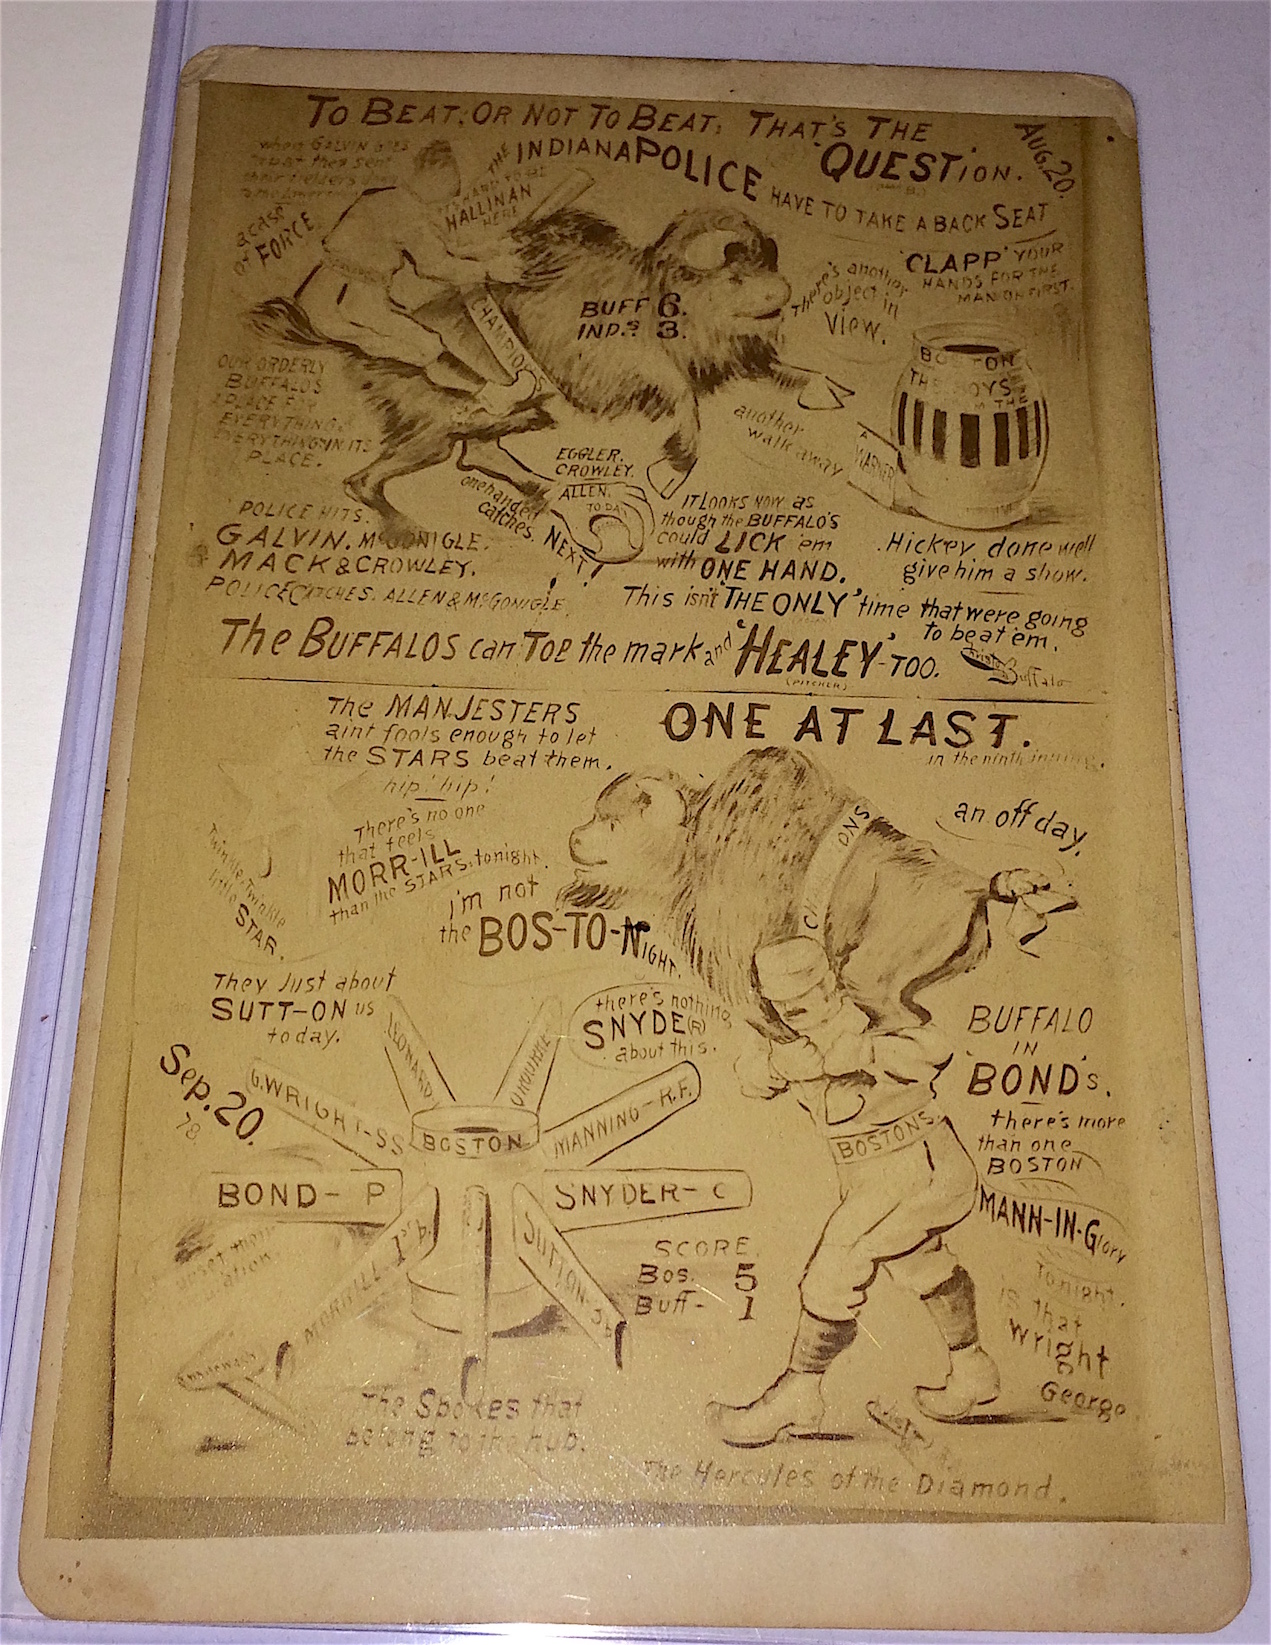 TO BEAT: OR NOT TO BEAT, THAT'S THE
'QUESTION.
AUG. 20.
THE INDIANAPOLICE HAVE TO TAKE A BACK SEAT
when GALVIN GOES
to bat they sent
their fielders
a case
OF FORCE
HALLINAN
HERE
'CLAPP' YOUR
HANDS FOR THE
MAN ON FIRST.
There's another
object in
VIEW.
BUFF 6.
IND.S 3.
CHAMPIONS
BOSTON
THE BOYS
IN THE
OUR ORDERLY
BUFFALO'S
A PLACE FOR
EVERYTHING &
EVERYTHING IN ITS
PLACE.
another
walk away
A
WARNER
EGGLER.
CROWLEY.
ALLEN.
TO DAY
one handed
catches.
NEXT!
POLICE HITS.
GALVIN. McGONIGLE.
MACK & CROWLEY.
POLICE CATCHES. ALLEN & McGONIGLE.
IT LOOKS NOW as
though the BUFFALO'S
could LICK 'em
with ONE HAND.
Hickey done well
give him a show.
This isn't 'THE ONLY' time that were going
to beat 'em.
The BUFFALOS can TOE the mark and 'HEALEY'-TOO.
(PITCHER)
Buffalo
The MANJESTERS
aint fools enough to let
the STARS beat them.
hip! hip!
ONE AT LAST.
in the ninth inning.
There's no one
that feels
MORR-ILL
than the STARS, tonight.
Twinkle, Twinkle
little
STAR.
i'm not
the BOS-TO-NIGHT.
an off day.
CH
ONS
They Just about
SUTT-ON us
today.
there's nothing
SNYDE(R)
about this.
Sep. 20.
78.
LEONARD
OROURKE
G. WRIGHT-SS
BOSTON
MANNING-R.F.
BOND- P
SNYDER- C
MORRILL 1st
SUTTON-3b
SCORE
Bos. 5
Buff- 1
BUFFALO
IN
'BOND'S.
BOSTONS.
there's more
than one
BOSTON
MANN-IN-Glory
Tonight.
is that
Wright
George
The Spokes that
belong to the hub.
The Hercules of the Diamond.